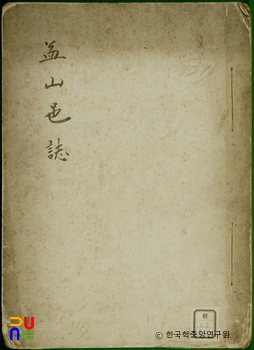 益山邑誌
© 한국학중앙연구원